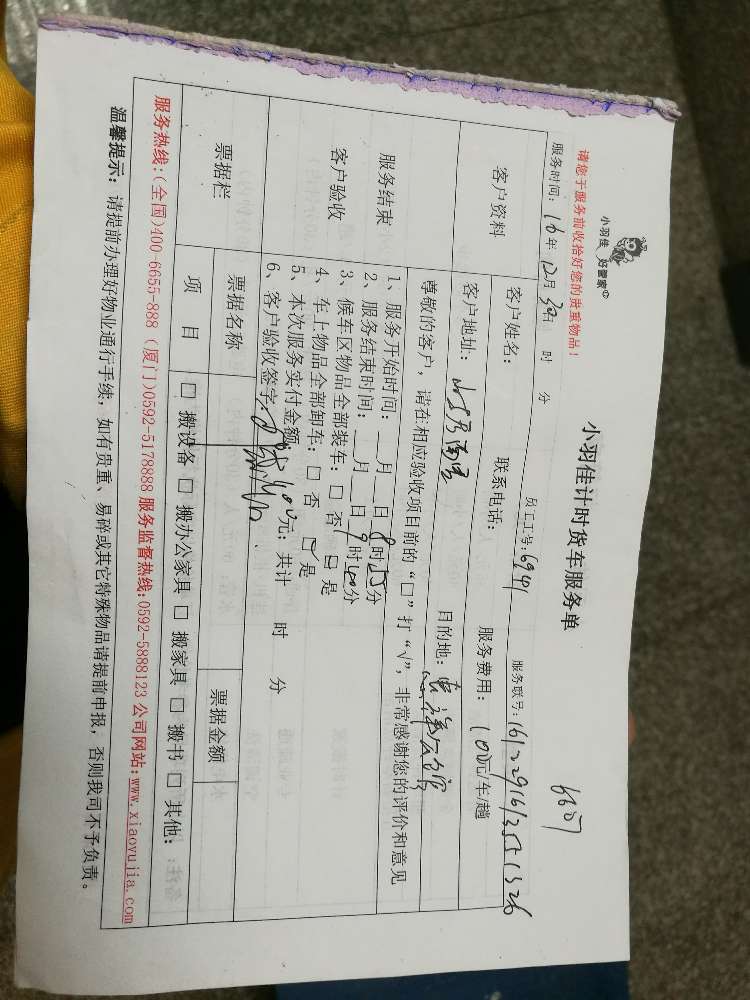 小羽佳 好管家
小羽佳计时货车服务单
请您于服务前收拾好您的贵重物品！
服务时间：16年12月30日 时 分 员工工号：6941 服务联号：
客户资料
客户姓名： 联系电话： 服务费用：100元/车/趟
客户地址： 目的地：
尊敬的客户，请在相应验收项目前的“□”打“√”，非常感谢您的评价和意见
服务结束
客户验收
1、服务开始时间：__月__日8时55分
2、服务结束时间：__月__日9时40分
3、候车区物品全部装车：□ 否 □ 是
4、车上物品全部卸车：□ 否 ☑ 是
5、本次服务实付金额：100元；共计 时 分
6、客户验收签字：
票据栏
票据名称 票据金额
项 目
□ 搬设备 □ 搬办公家具 □ 搬家具 □ 搬书 □ 其他：
服务热线：(全国)400-6655-888 (厦门)0592-5178888 服务监督热线：0592-5888123 公司网站：www.xiaoyujia.com
温馨提示：请提前办理好物业通行手续，如有贵重、易碎或其它特殊物品请提前申报，否则我司不予负责。